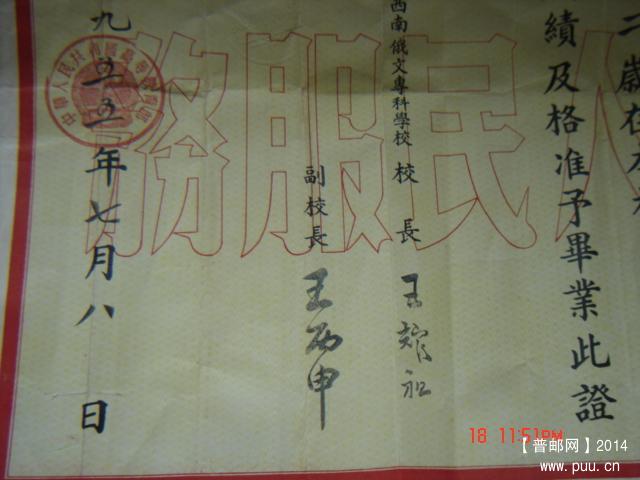 二歲在本
績及格准予畢業此證
西南俄文專科學校校長
副校長 王丙申
九五五年七月八日
人民服務
18 11:51PM
【普邮网】2014
www.puu.cn